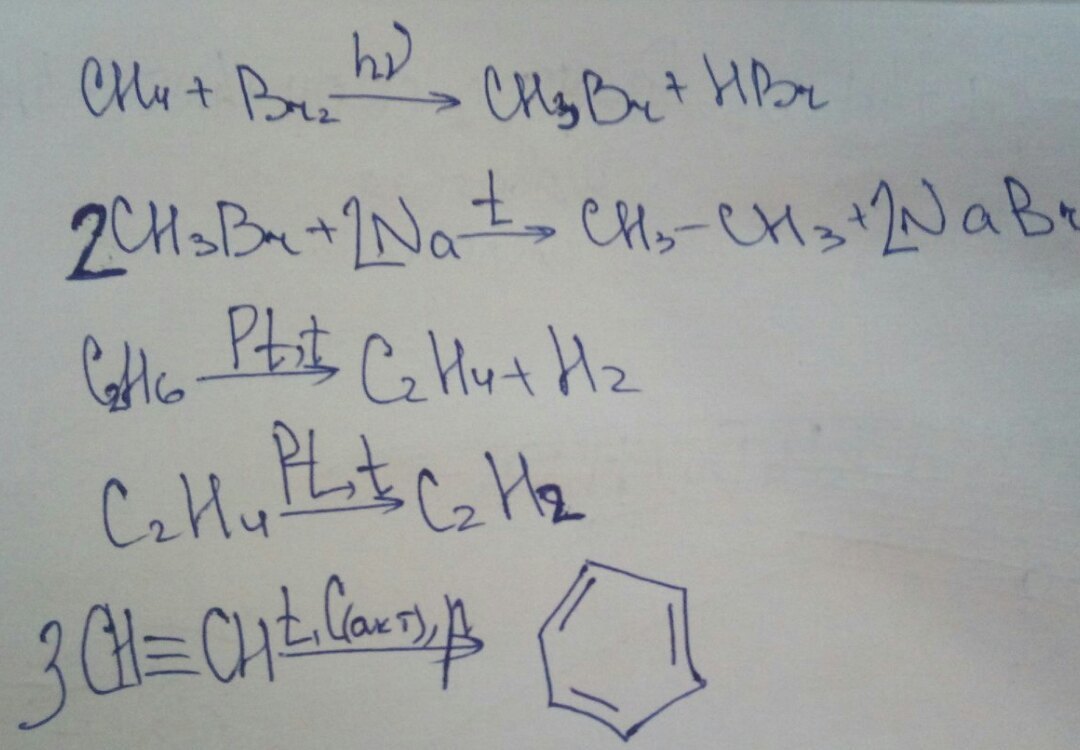 CH₄ + Br₂ hν → CH₃Br + HBr
2CH₃Br + 2Na t → CH₃-CH₃ + 2NaBr
C₂H₆ Pt, t → C₂H₄ + H₂
C₂H₄ Pt, t → C₂H₂
3CH≡CH t, C(акт), p →